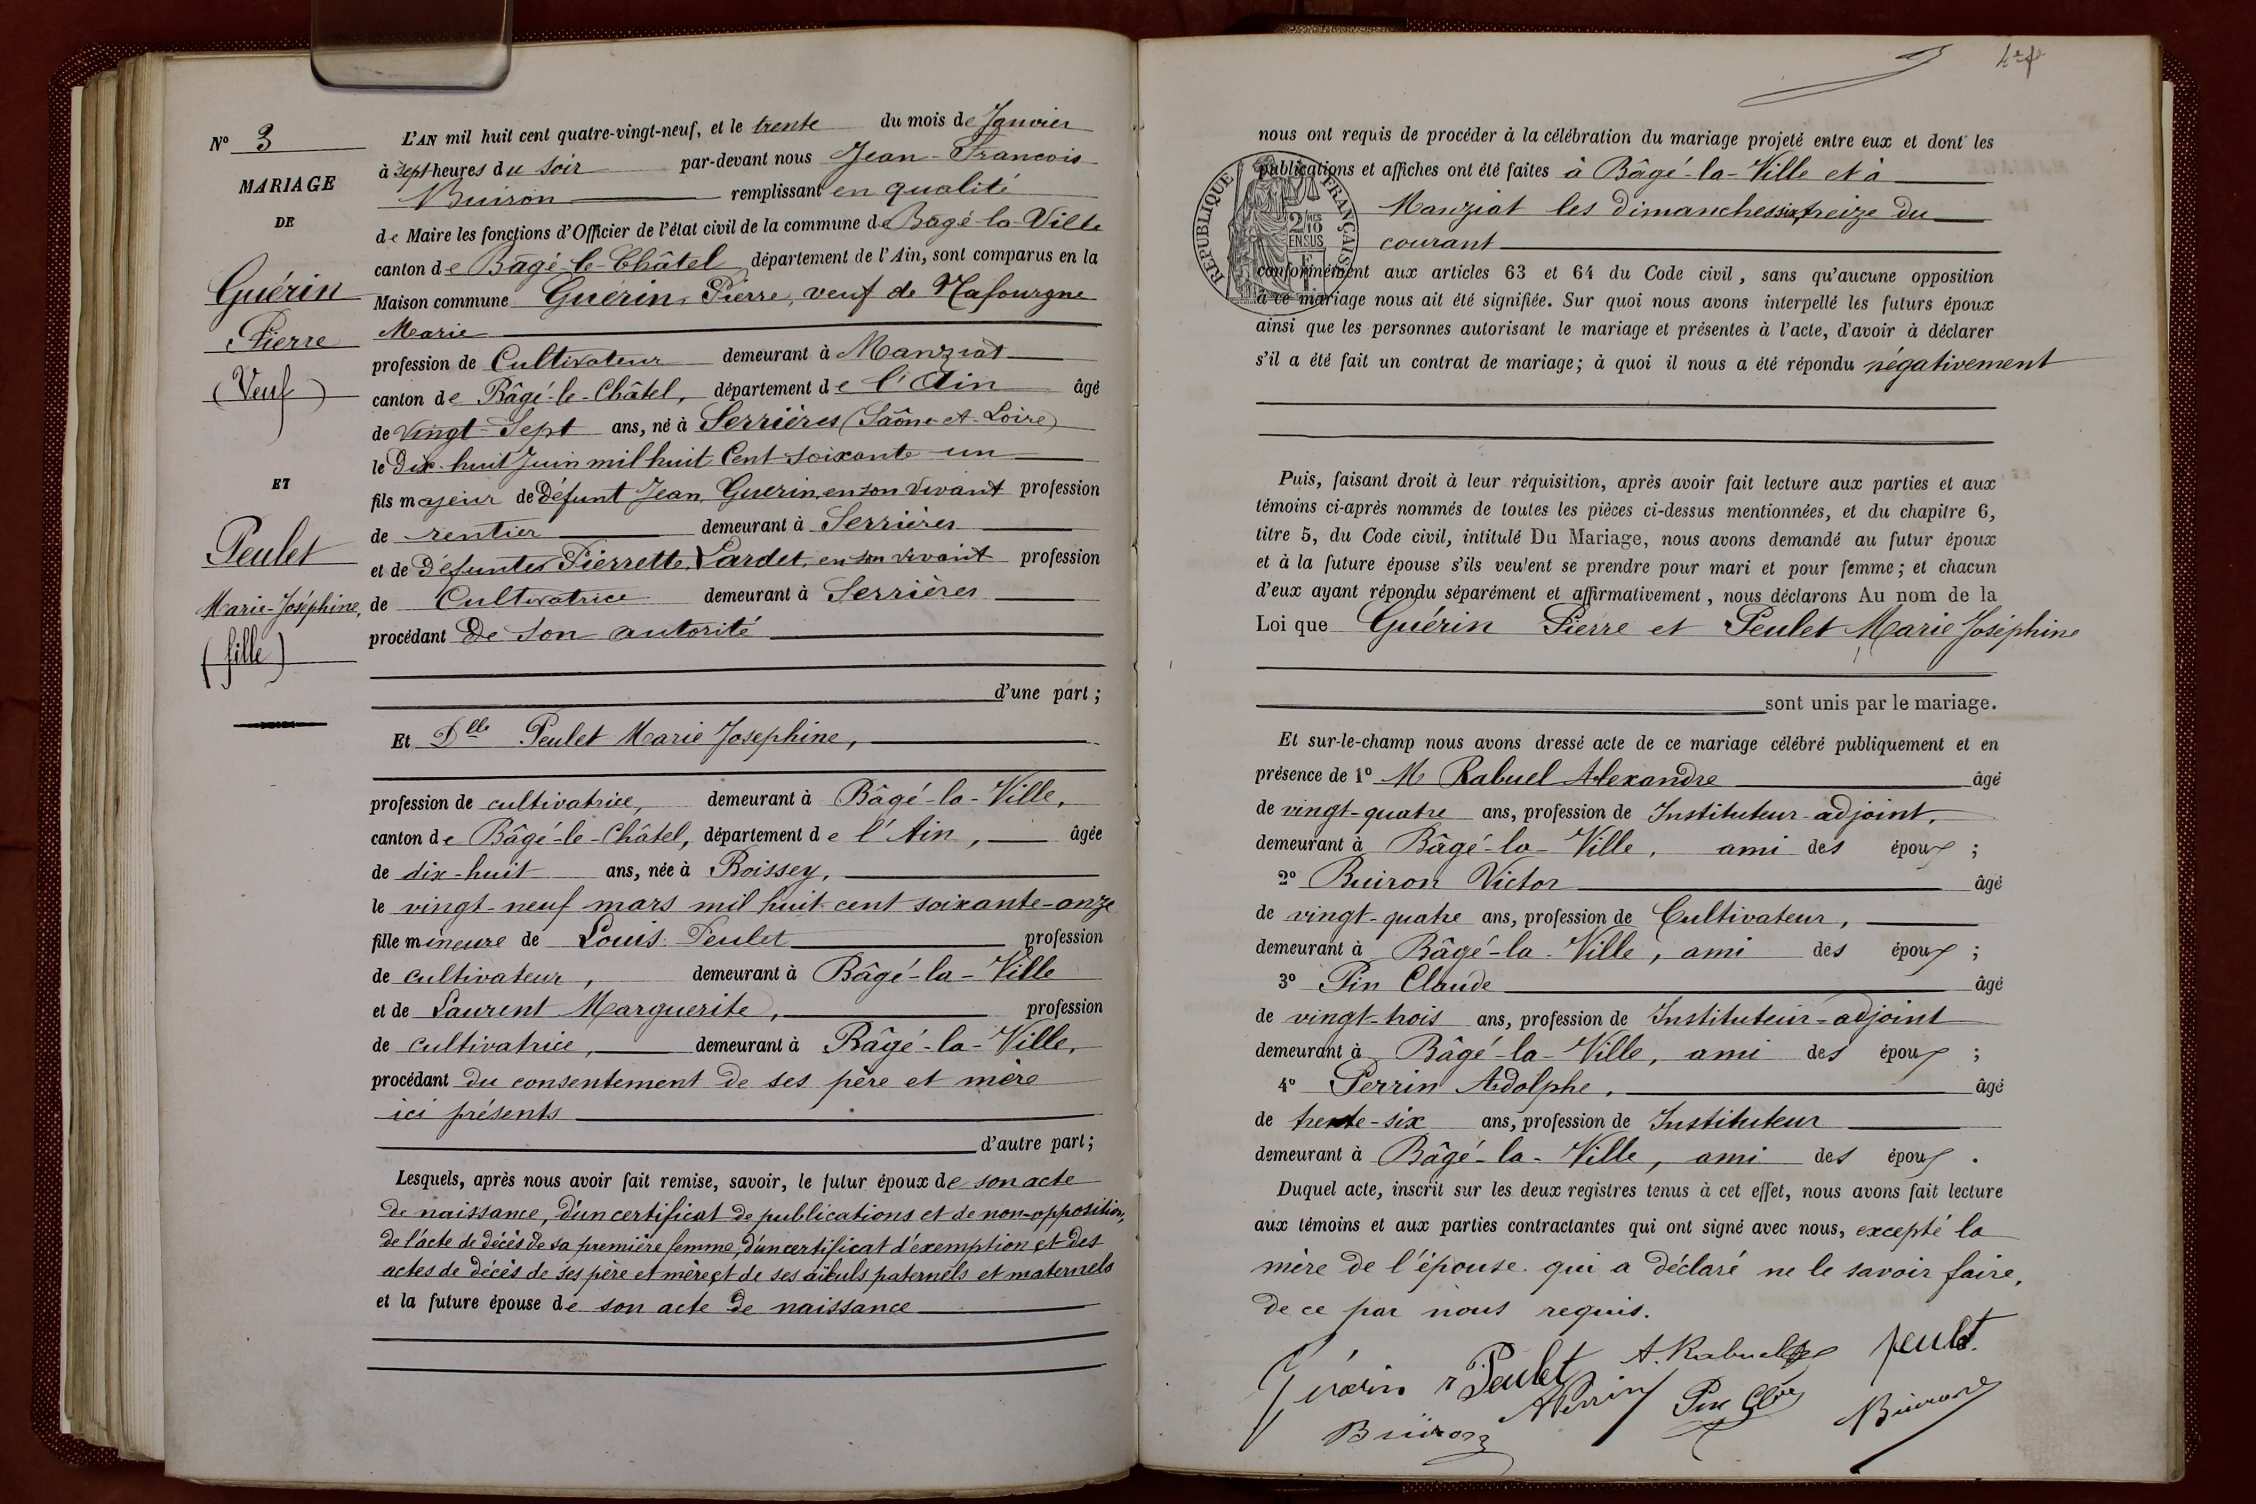 N° 3
MARIAGE
DE
Guérin
Pierre
(Veuf)
ET
Peulet
Marie-Joséphine,
(fille)
L'AN mil huit cent quatre-vingt-neuf, et le trente du mois de Janvier
à Sept heures du soir par-devant nous Jean-Francois
Buiron remplissant en qualité
de Maire les fonctions d'Officier de l'état civil de la commune de Bâgé-la-Ville
canton de Bâgé-le-Châtel département de l'Ain, sont comparus en la
Maison commune Guérin, Pierre, veuf de Nafourgne
Marie
profession de Cultivateur demeurant à Manziat
canton de Bâgé-le-Châtel, département de l'Ain âgé
de Vingt-Sept ans, né à Serrières (Saône-et-Loire)
le Dix-huit Juin mil huit Cent soixante-un
fils majeur de Défunt Jean Guerin, en son Vivant profession
de rentier demeurant à Serrières
et de Défunte Pierrette Lardet, en son vivant profession
de Cultivatrice demeurant à Serrières
procédant De son autorité
d'une part ;
Et Dlle Peulet Marie Josephine,
profession de cultivatrice, demeurant à Bâgé-la-Ville,
canton de Bâgé-le-Châtel, département de l'Ain, âgée
de dix-huit ans, née à Boissey,
le vingt-neuf mars mil huit cent soixante-onze
fille mineure de Louis Peulet profession
de cultivateur, demeurant à Bâgé-la-Ville
et de Laurent Marguerite, profession
de cultivatrice, demeurant à Bâgé-la-Ville,
procédant du consentement de ses père et mère
ici présents
d'autre part ;
Lesquels, après nous avoir fait remise, savoir, le futur époux de son acte
de naissance, d'un certificat de publications et de non-opposition,
de l'acte de décès de sa première femme, d'un certificat d'exemption et des
actes de décès de ses père et mère et de ses aïeuls paternels et maternels
et la future épouse de son acte de naissance
nous ont requis de procéder à la célébration du mariage projeté entre eux et dont les
publications et affiches ont été faites à Bâgé-la-Ville et à
Manziat les dimanches six, treize du
courant
RÉPUBLIQUE FRANÇAISE
2/10
EN SUS
conformément aux articles 63 et 64 du Code civil, sans qu'aucune opposition
à ce mariage nous ait été signifiée. Sur quoi nous avons interpellé les futurs époux
ainsi que les personnes autorisant le mariage et présentes à l'acte, d'avoir à déclarer
s'il a été fait un contrat de mariage; à quoi il nous a été répondu négativement
Puis, faisant droit à leur réquisition, après avoir fait lecture aux parties et aux
témoins ci-après nommés de toutes les pièces ci-dessus mentionnées, et du chapitre 6,
titre 5, du Code civil, intitulé Du Mariage, nous avons demandé au futur époux
et à la future épouse s'ils veulent se prendre pour mari et pour femme; et chacun
d'eux ayant répondu séparément et affirmativement, nous déclarons Au nom de la
Loi que Guérin Pierre et Peulet Marie Joséphine
sont unis par le mariage.
Et sur-le-champ nous avons dressé acte de ce mariage célébré publiquement et en
présence de 1° M Rabuel Alexandre âgé
de vingt-quatre ans, profession de Instituteur-adjoint,
demeurant à Bâgé-la-Ville, ami des époux ;
2° Buiron Victor âgé
de vingt-quatre ans, profession de Cultivateur,
demeurant à Bâgé-la-Ville, ami des époux ;
3° Pin Claude âgé
de vingt-trois ans, profession de Instituteur-adjoint
demeurant à Bâgé-la-Ville, ami des époux ;
4° Perrin Adolphe, âgé
de trente-six ans, profession de Instituteur
demeurant à Bâgé-la-Ville, ami des époux.
Duquel acte, inscrit sur les deux registres tenus à cet effet, nous avons fait lecture
aux témoins et aux parties contractantes qui ont signé avec nous, excepté la
mère de l'épouse qui a déclaré ne le savoir faire,
de ce par nous requis.
Guérin Peulet A. Rabuel peulet
Buiron APerrin Pin Cl Buiron